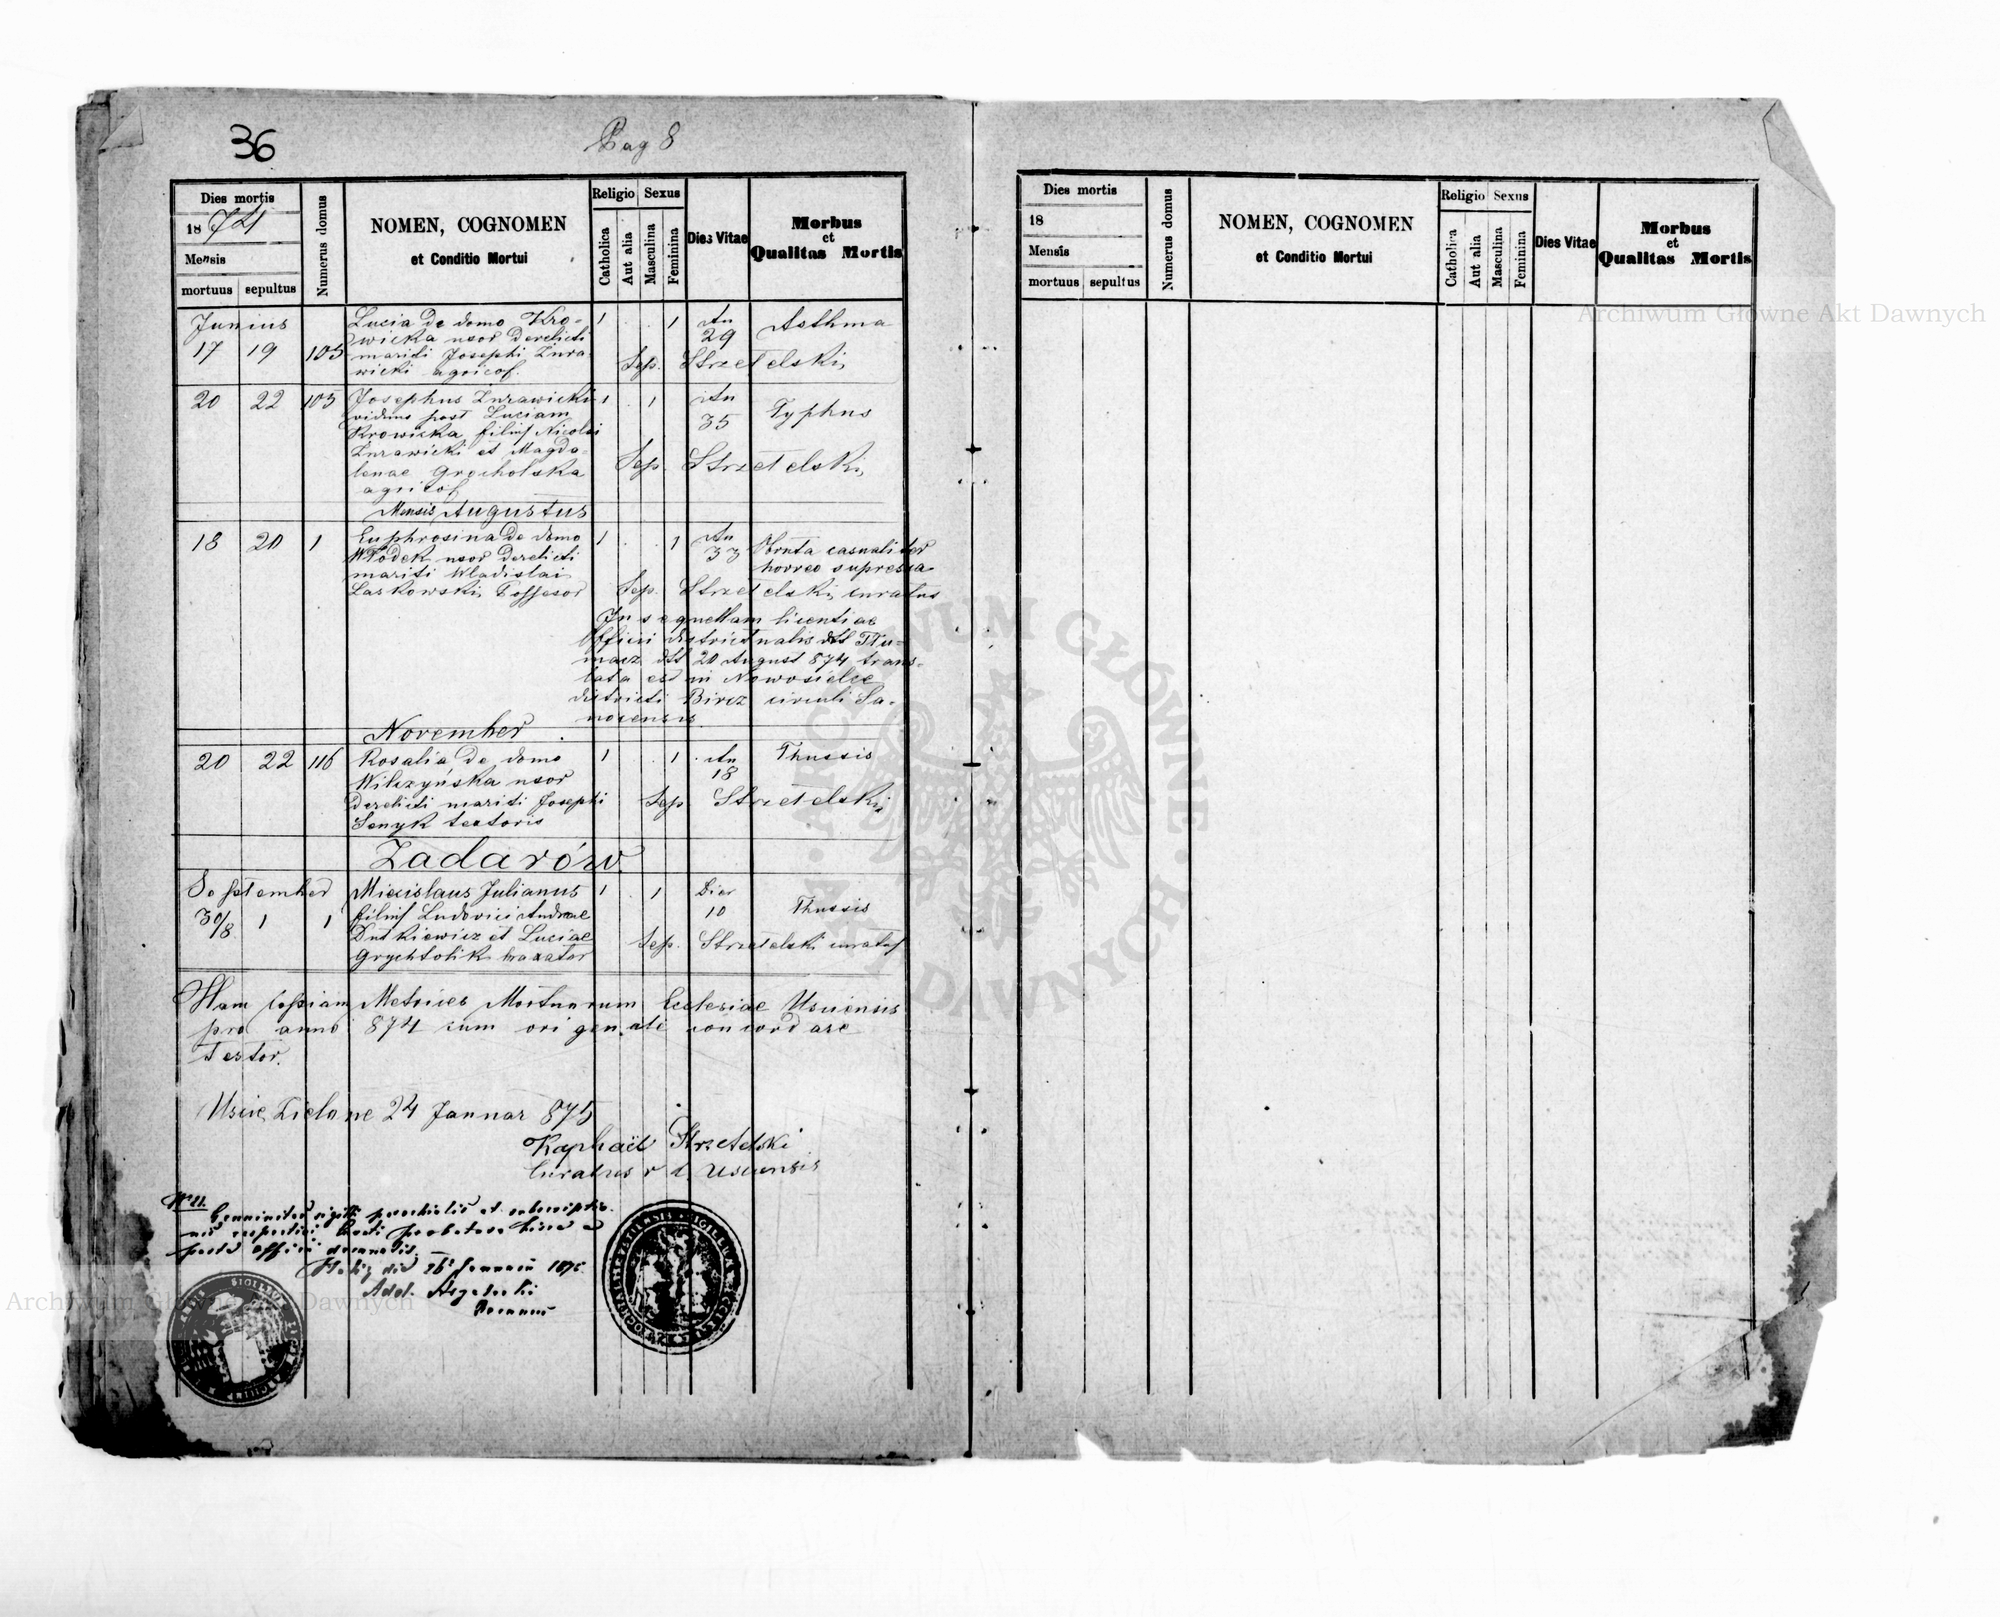 36
Pag 8
Dies mortis
1874
Mensis
mortuus sepultus
Numerus domus
NOMEN, COGNOMEN
et Conditio Mortui
Religio Sexus
Catholica
Aut alia
Masculina
Feminina
Dies Vitae
Morbus
et
Qualitas Mortis
Junius
17 19 105
Lucia de domo Kro-
wicka uxor derelicti
mariti Josephi Żura-
wicki agricol.
1 1 An
29
Asthma
Sep. Strzetelski
20 22 105
Josephus Żurawicki
viduus post Luciam
Krowicka filius Nicolai
Żurawicki et Magda-
lenae Grocholska
agricol
1 1 An
35
Typhus
Sep. Strzetelski
Mensis Augustus
18 20 1
Euphrosina de domo
Włodek uxor derelicti
mariti Wladislai
Laskowski Possesor
1 1 An
33
Obruta casualiter
horreo supressa
Sep. Strzetelski curatus
In sequellam licentiae
Officii districtualis ddt Tłu-
macz ddt 20 August 874 trans-
lata est in Nowosielce
districti Bircz circuli Sa-
nocensis
November
20 22 116
Rosalia de domo
Wilczyńska uxor
derelicti mariti Josephi
Senyk textoris
1 1 An
18
Thussis
Sep Strzetelski
Zadarów
September
30/8 1 1
Miecislaus Julianus
filius Ludovici Andreae
Dutkiewicz et Luciae
Grychtolik taxator
1 1 Dier
10
Thussis
Sep. Strzetelski curatus
Hanc Copiam Metrices Mortuorum Ecclesiae Usciensis
pro anno 874 cum origenale concordare
Testor.
Uście Zielone 24 Januar 875
Raphaël Strzetelski
Curatus r. l. Usciensis
Dies mortis
18
Mensis
mortuus sepultus
Numerus domus
NOMEN, COGNOMEN
et Conditio Mortui
Religio Sexus
Catholica
Aut alia
Masculina
Feminina
Dies Vitae
Morbus
et
Qualitas Mortis
Archiwum Główne Akt Dawnych
Archiwum Główne Akt Dawnych
ARCHIWUM GŁÓWNE · AKT DAWNYCH ·